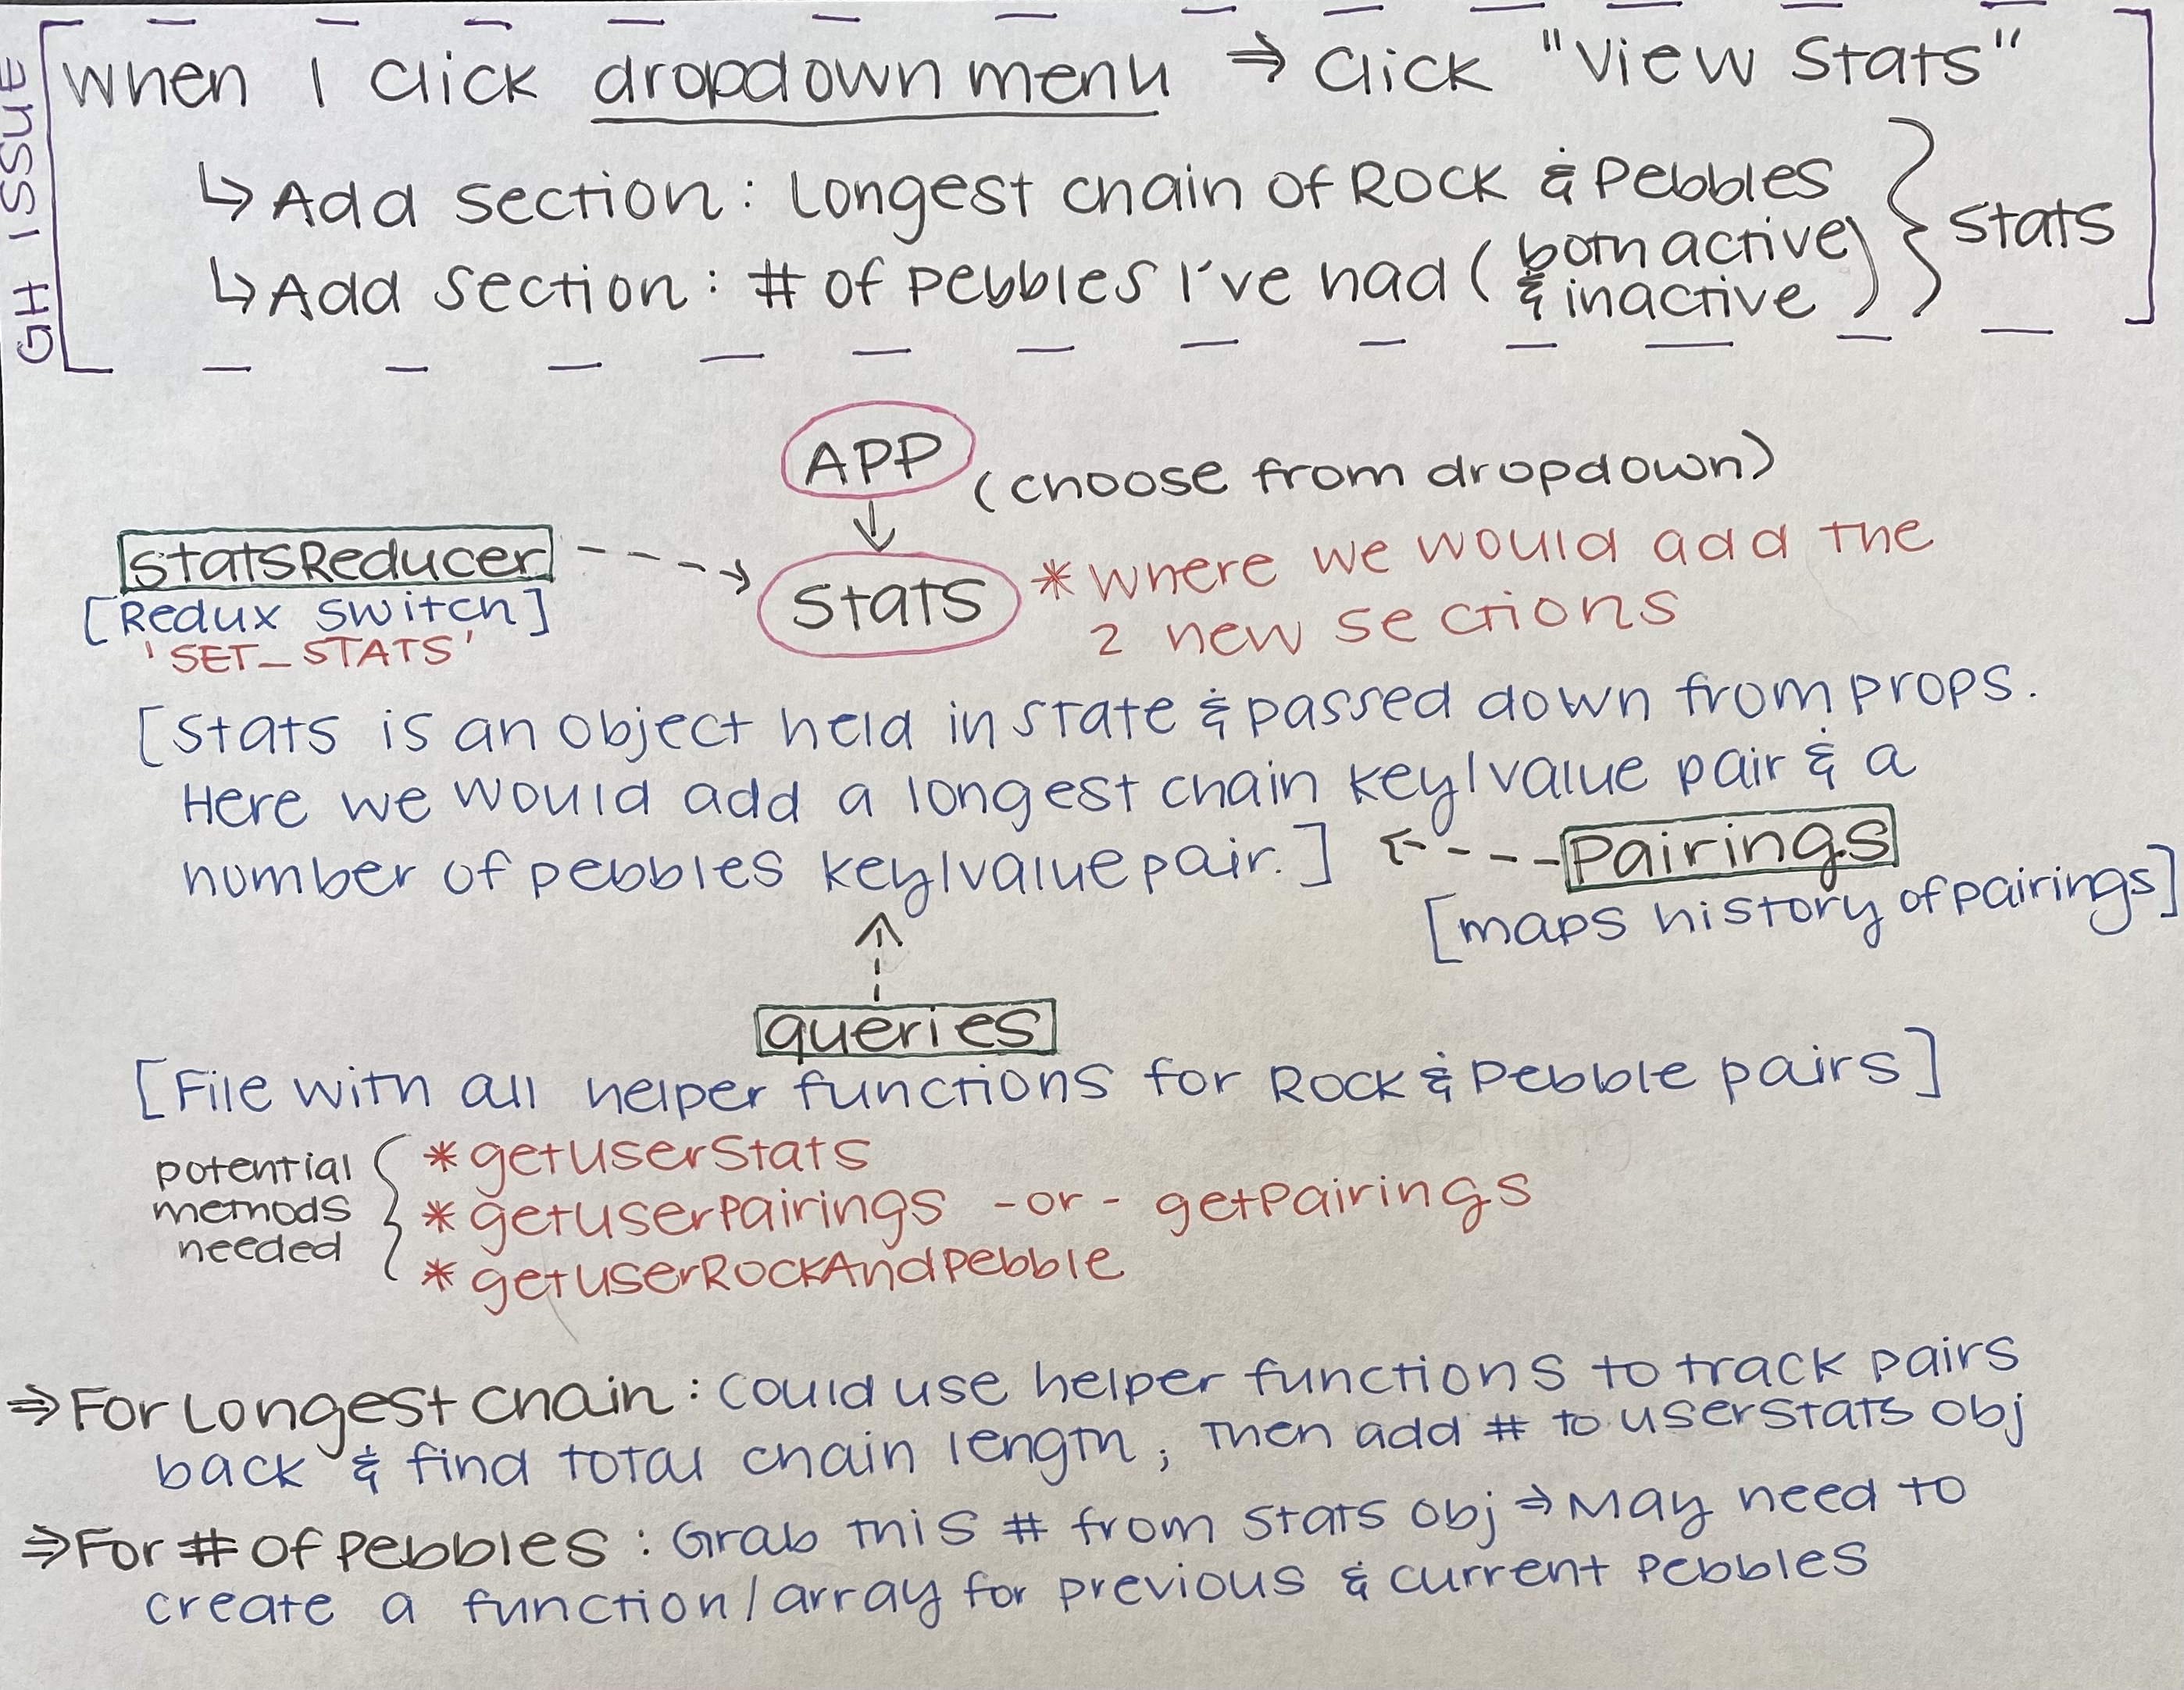 GH ISSUE
When I click dropdown menu ⇒ Click "View Stats"
↳ Add section: Longest chain of Rock & Pebbles
↳ Add section: # of pebbles I've had (both active & inactive)
} Stats
APP
(choose from dropdown)
statsReducer
[Redux switch]
'SET_STATS'
Stats
* Where we would add the
2 new sections
[Stats is an object held in state & passed down from props.
Here we would add a longest chain key/value pair & a
number of pebbles key/value pair.]
Pairings
[maps history of pairings]
queries
[File with all helper functions for Rock & Pebble pairs]
potential
methods
needed
* getUserStats
* getUserPairings -or- getPairings
* getUserRockAndPebble
⇒ For Longest Chain: Could use helper functions to track pairs
back & find total chain length, then add # to userStats obj
⇒ For # of Pebbles: Grab this # from stats obj ⇒ May need to
create a function/array for previous & current pebbles